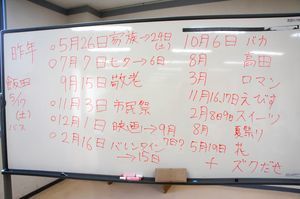 昨年
○5月26日 家族→24日(土)
○7月7日 七夕→6日
9月15日 敬老
○11月3日 市民祭
○12月1日 映画→9月7日?
○2月16日 バレンタイン
→15日
飯田
5/17
(土)
バス
10月6日 バカ
8月 高田
3月 ロマン
11月16.17日 えびす
2月8日9日 スイーツ
8月 夏祭り
5月19日 花
+ ズクだせ